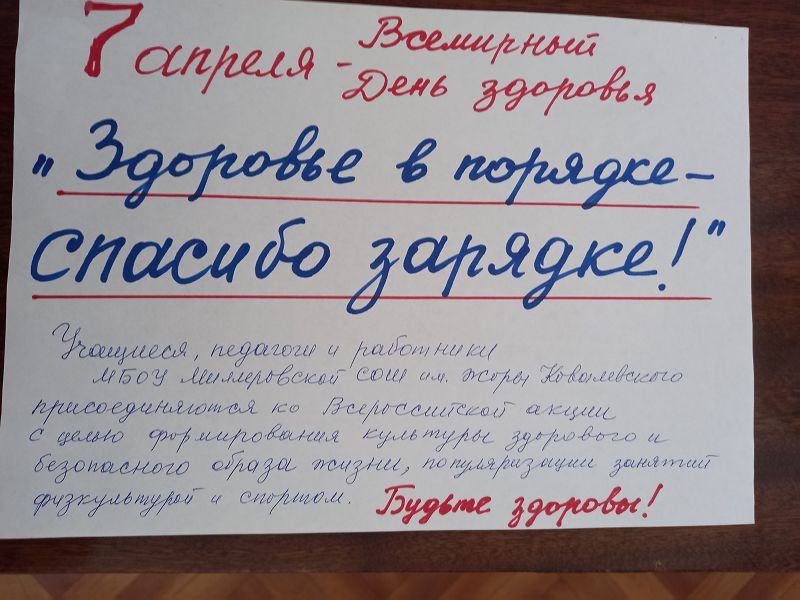 7 апреля - Всемирный
День здоровья
"Здоровье в порядке-
спасибо зарядке!"
Учащиеся, педагоги и работники
МБОУ Миллеровской СОШ им. Жоры Ковалевского
присоединяются ко Всероссийской акции
с целью формирования культуры здорового и
безопасного образа жизни, популяризации занятий
физкультурой и спортом. Будьте здоровы!